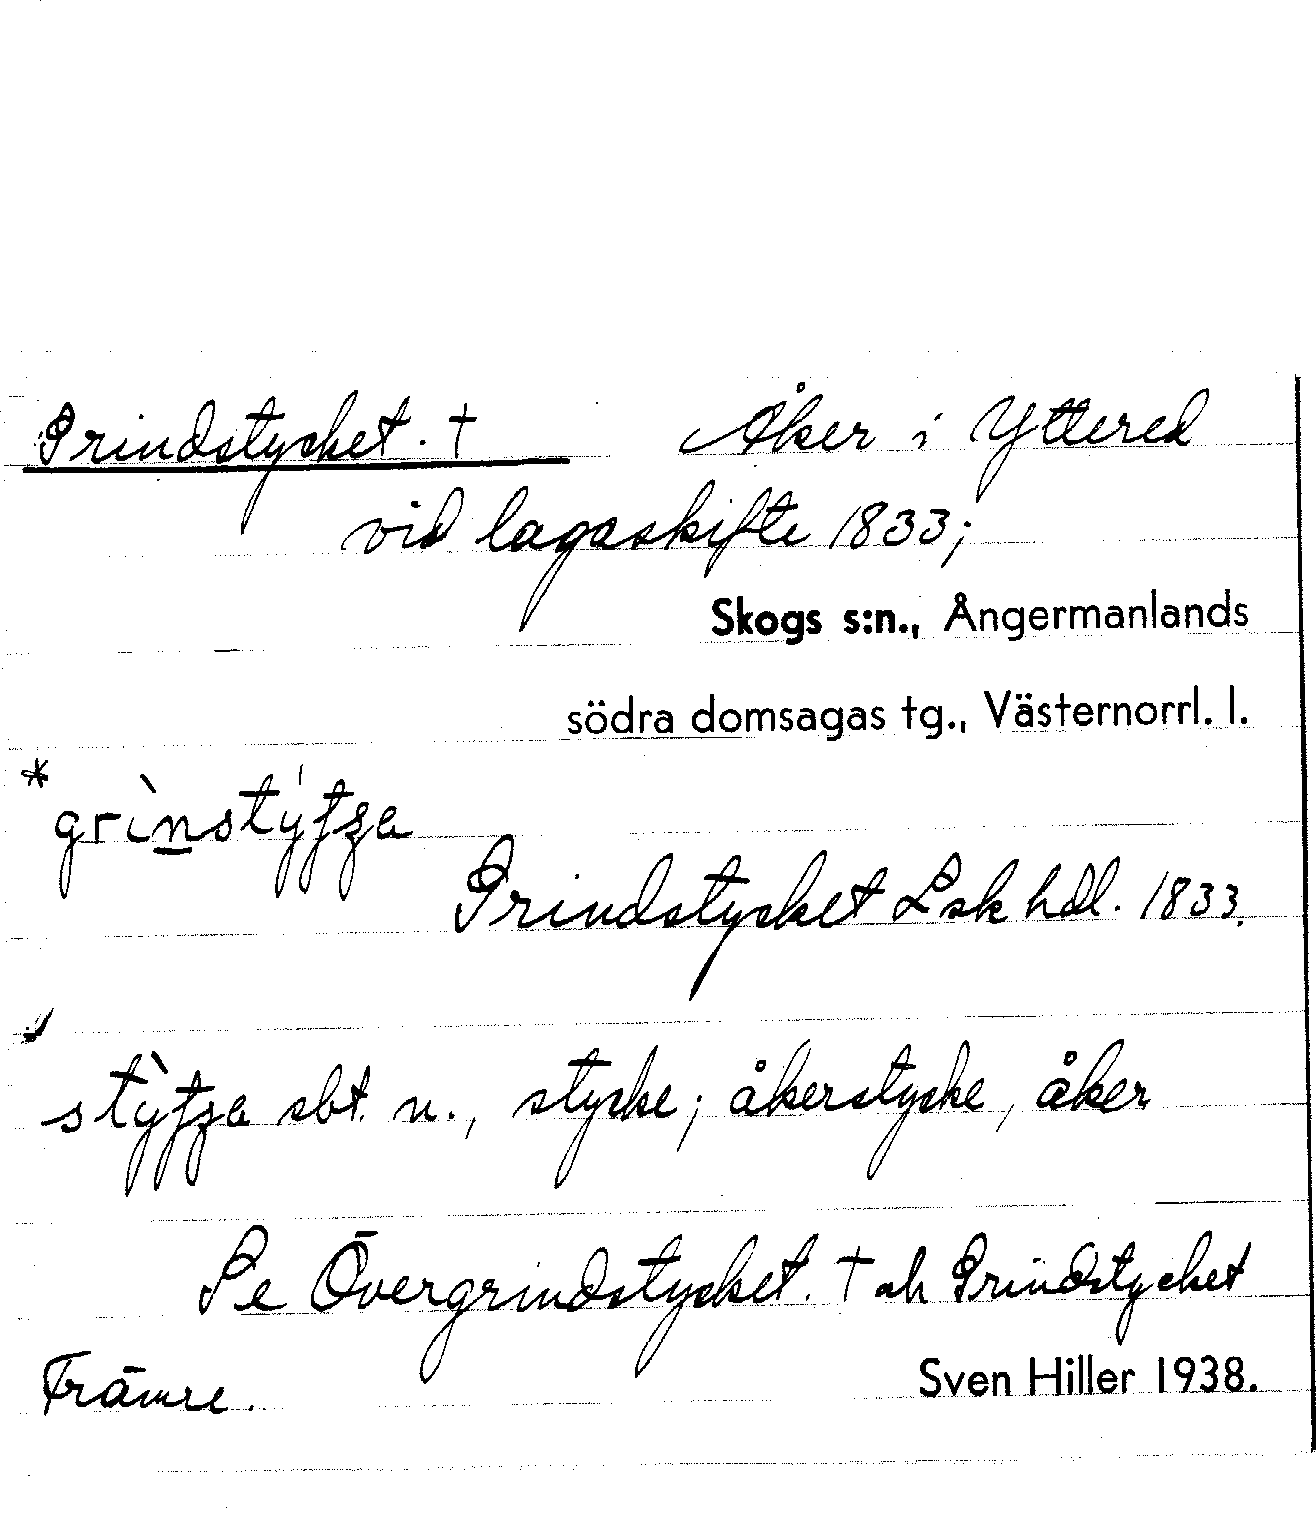 Grindstycket. † Åker i Yttered
vid lagaskifte 1833;
Skogs s:n., Ångermanlands
södra domsagas tg., Västernorrl. l.
*
Grindstycket Lsk hdl. 1833.
sbt. n., stycke; åkerstycke, åker
Se Övergrindstycket. † och Grindstycket
Främre. Sven Hiller 1938.